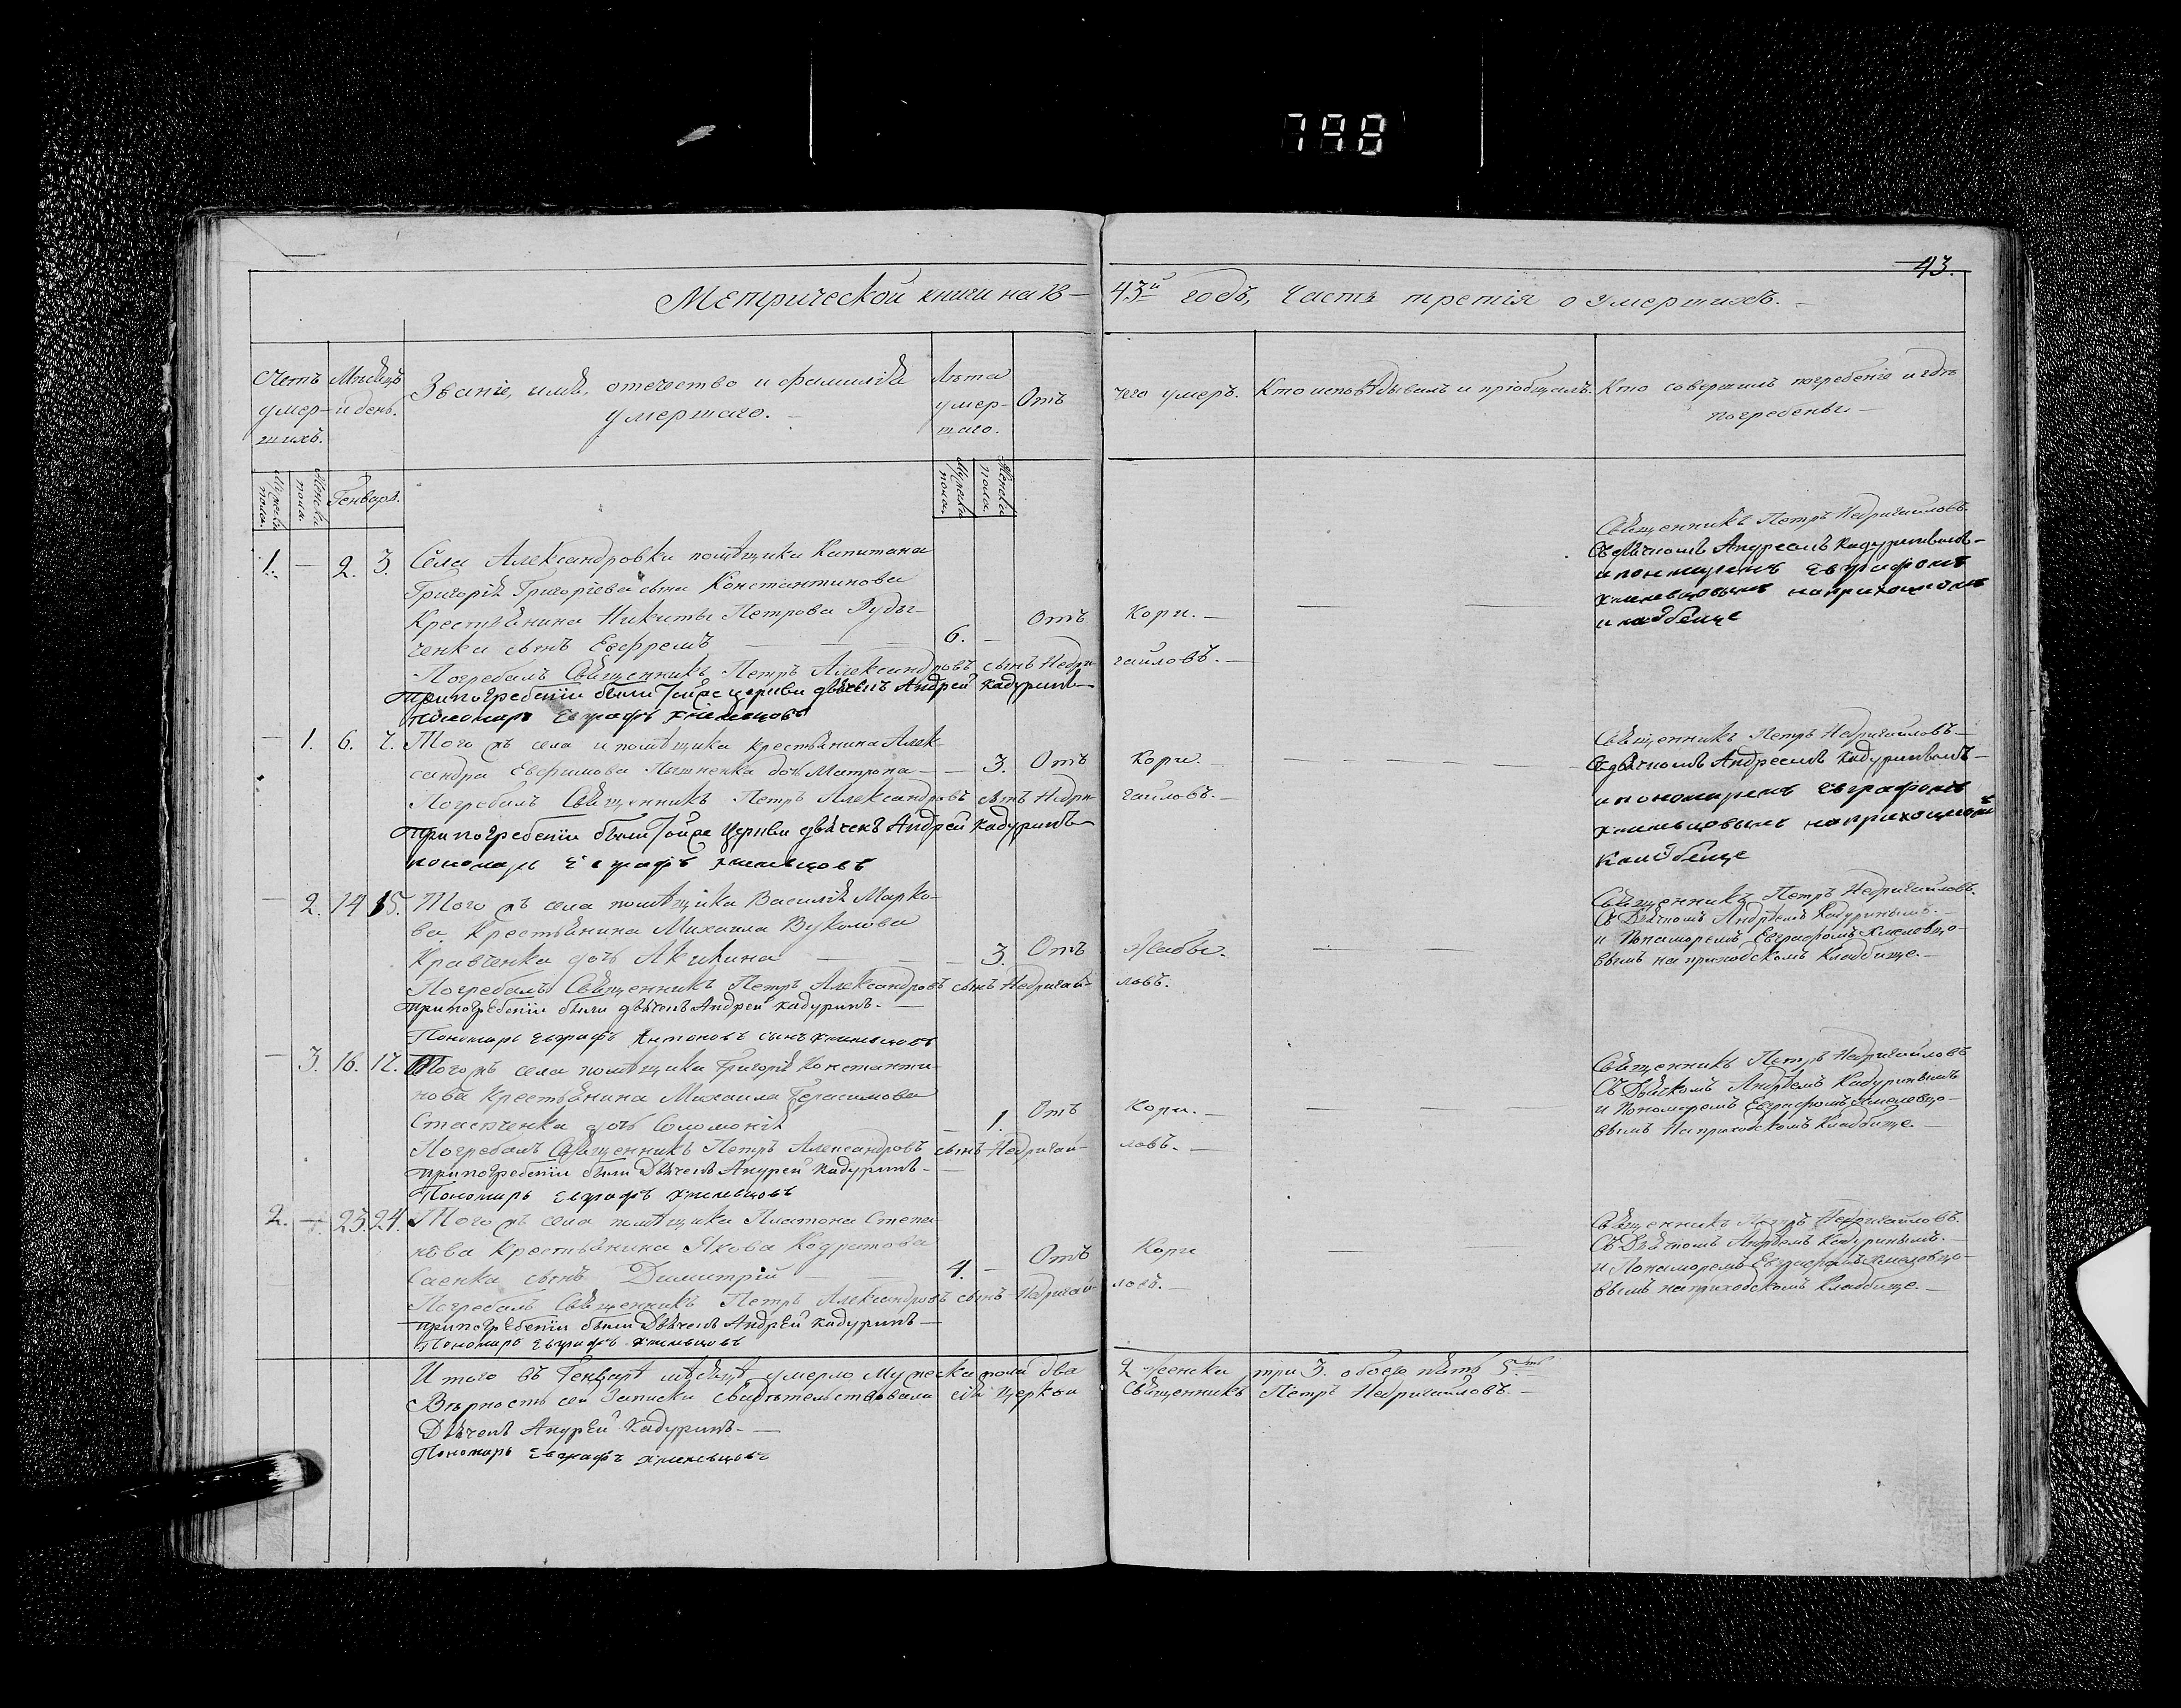 798
43.
Метрической книги на 18— 43й годъ, Часть третія о умершихъ.
Счетъ умер- шихъ.
Мѣсяцъ и день.
Званіе, имя, отечество и фамилія
умершаго.
Лѣта умер- шаго.
Отъ чего умеръ.
Кто исповѣдывалъ и пріобщалъ.
Кто совершилъ погребеніе и гдѣ
погребены
Мужеска пола.
Женска пола.
Генваря.
Мужеска пола.
Женска пола.
Священникъ Петръ Недригайловъ
1. — 2. 3. Села Александровки помѣщика Капитана
съ дьячкомъ Андреемъ Кадуринымъ
Григорія Григорієва сына Константинова
и пономаремъ Евграфомъ
Крестьянина Никиты Петрова Руды- Отъ Кори.
Хмельцовымъ на приходскомъ
ченка сынъ Евфремъ 6. —
кладбище
Погребалъ Священникъ Петръ Александровъ сынъ Недри- гайловъ.
При погребеніи были тойже церкви дьячекъ Андрей Кадуринъ
пономарь Евграфъ Хмельцовъ
— 1. 6. 7. Того жъ села и помѣщика крестьянина Алек-
Священникъ Петръ Недригайловъ
сандра Евфимова дочь Матрона — 3. Отъ Кори.
съ дьячкомъ Андреемъ Кадуринымъ
Погребалъ Священникъ Петръ Александровъ сынъ Недри- гайловъ.
и пономаремъ Евграфомъ
При погребеніи были тойже Церкви дьячекъ Андрей Кадуринъ
Хмельцовымъ на приходскомъ
пономарь Евграфъ Хмельцовъ
кладбище
— 2. 14 15. Того жъ села помѣщика Василія Марко-
Священникъ Петръ Недригайловъ
ва Крестьянина Михаила Вуколова
Съ Дьячкомъ Андреемъ Кадуринымъ.
Кравченка дочь Акилина — 3. Отъ Жабы.
и Пономаремъ Евграфомъ Хмелевцо-
вымъ на приходскомъ Кладбище.
Погребалъ Священникъ Петръ Александровъ сынъ Недригай- ловъ.
При погребеніи были дьячекъ Андрей Кадуринъ.
Пономарь Евграфъ Антоновъ сынъ Хмельцовъ
— 3. 16. 17. Того жъ села помѣщика Григорія Константи-
Священникъ Петръ Недригайловъ
нова Крестьянина Михаила Герасимова
Съ Дьячкомъ Андреемъ Кадуринымъ
дочь Соломонія — 1. Отъ Кори.
и Пономаремъ Евграфомъ Хмелевцо-
вымъ На приходскомъ Кладбище
Погребалъ Священникъ Петръ Александровъ сынъ Недригай- ловъ.
При погребеніи были Дьячекъ Андрей Кадуринъ.
Пономарь Евграфъ Хмельцовъ
2. — 23. 24. Того жъ села помѣщика Платона Степа-
Священникъ Петръ Недригайловъ.
нова Крестьянина Якова Кодратова
Съ Дьячкомъ Андреемъ Кадуринымъ.
Саенка сынъ Димитрій 4. — Отъ Кори
и Пономаремъ Евграфомъ Хмелевцо-
Погребалъ Священникъ Петръ Александровъ сынъ Недригай- ловъ.
вымъ на приходскомъ Кладбище.
При погребеніи были Дьячекъ Андрей Кадуринъ
Пономарь Евграфъ Хмельцовъ
Итого въ Генварѣ мѣсяцѣ умерло Мужеска пола два 2 женска три 3. обоего пять 5ть
Вѣрность сей Записки свидѣтельствовали сей церкви Священникъ Петръ Недригайловъ.
Дьячекъ Андрей Кадуринъ.
Пономарь Евграфъ Хмельцовъ